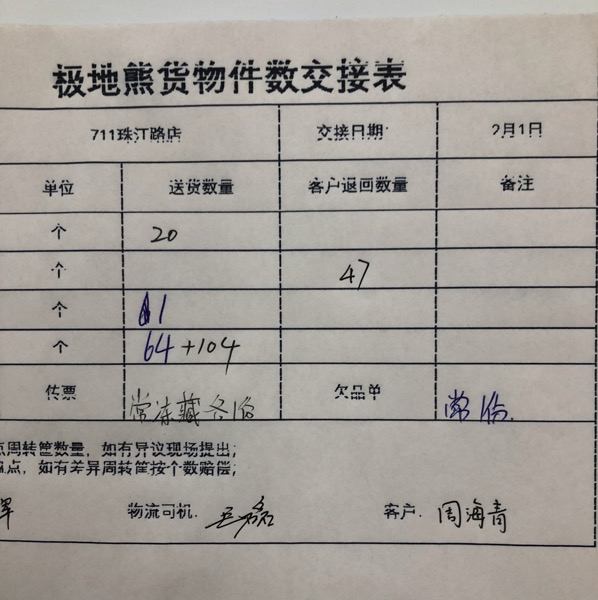 极地熊货物件数交接表
711珠江路店 交接日期: 2月1日
单位 送货数量 客户退回数量 备注
个 20
个 47
个 1
个 64+104
传票 常冻藏各1份 欠品单 常1份.
点周转筐数量，如有异议现场提出；
点，如有差异周转筐按个数赔偿；
物流司机. 客户. 周海青